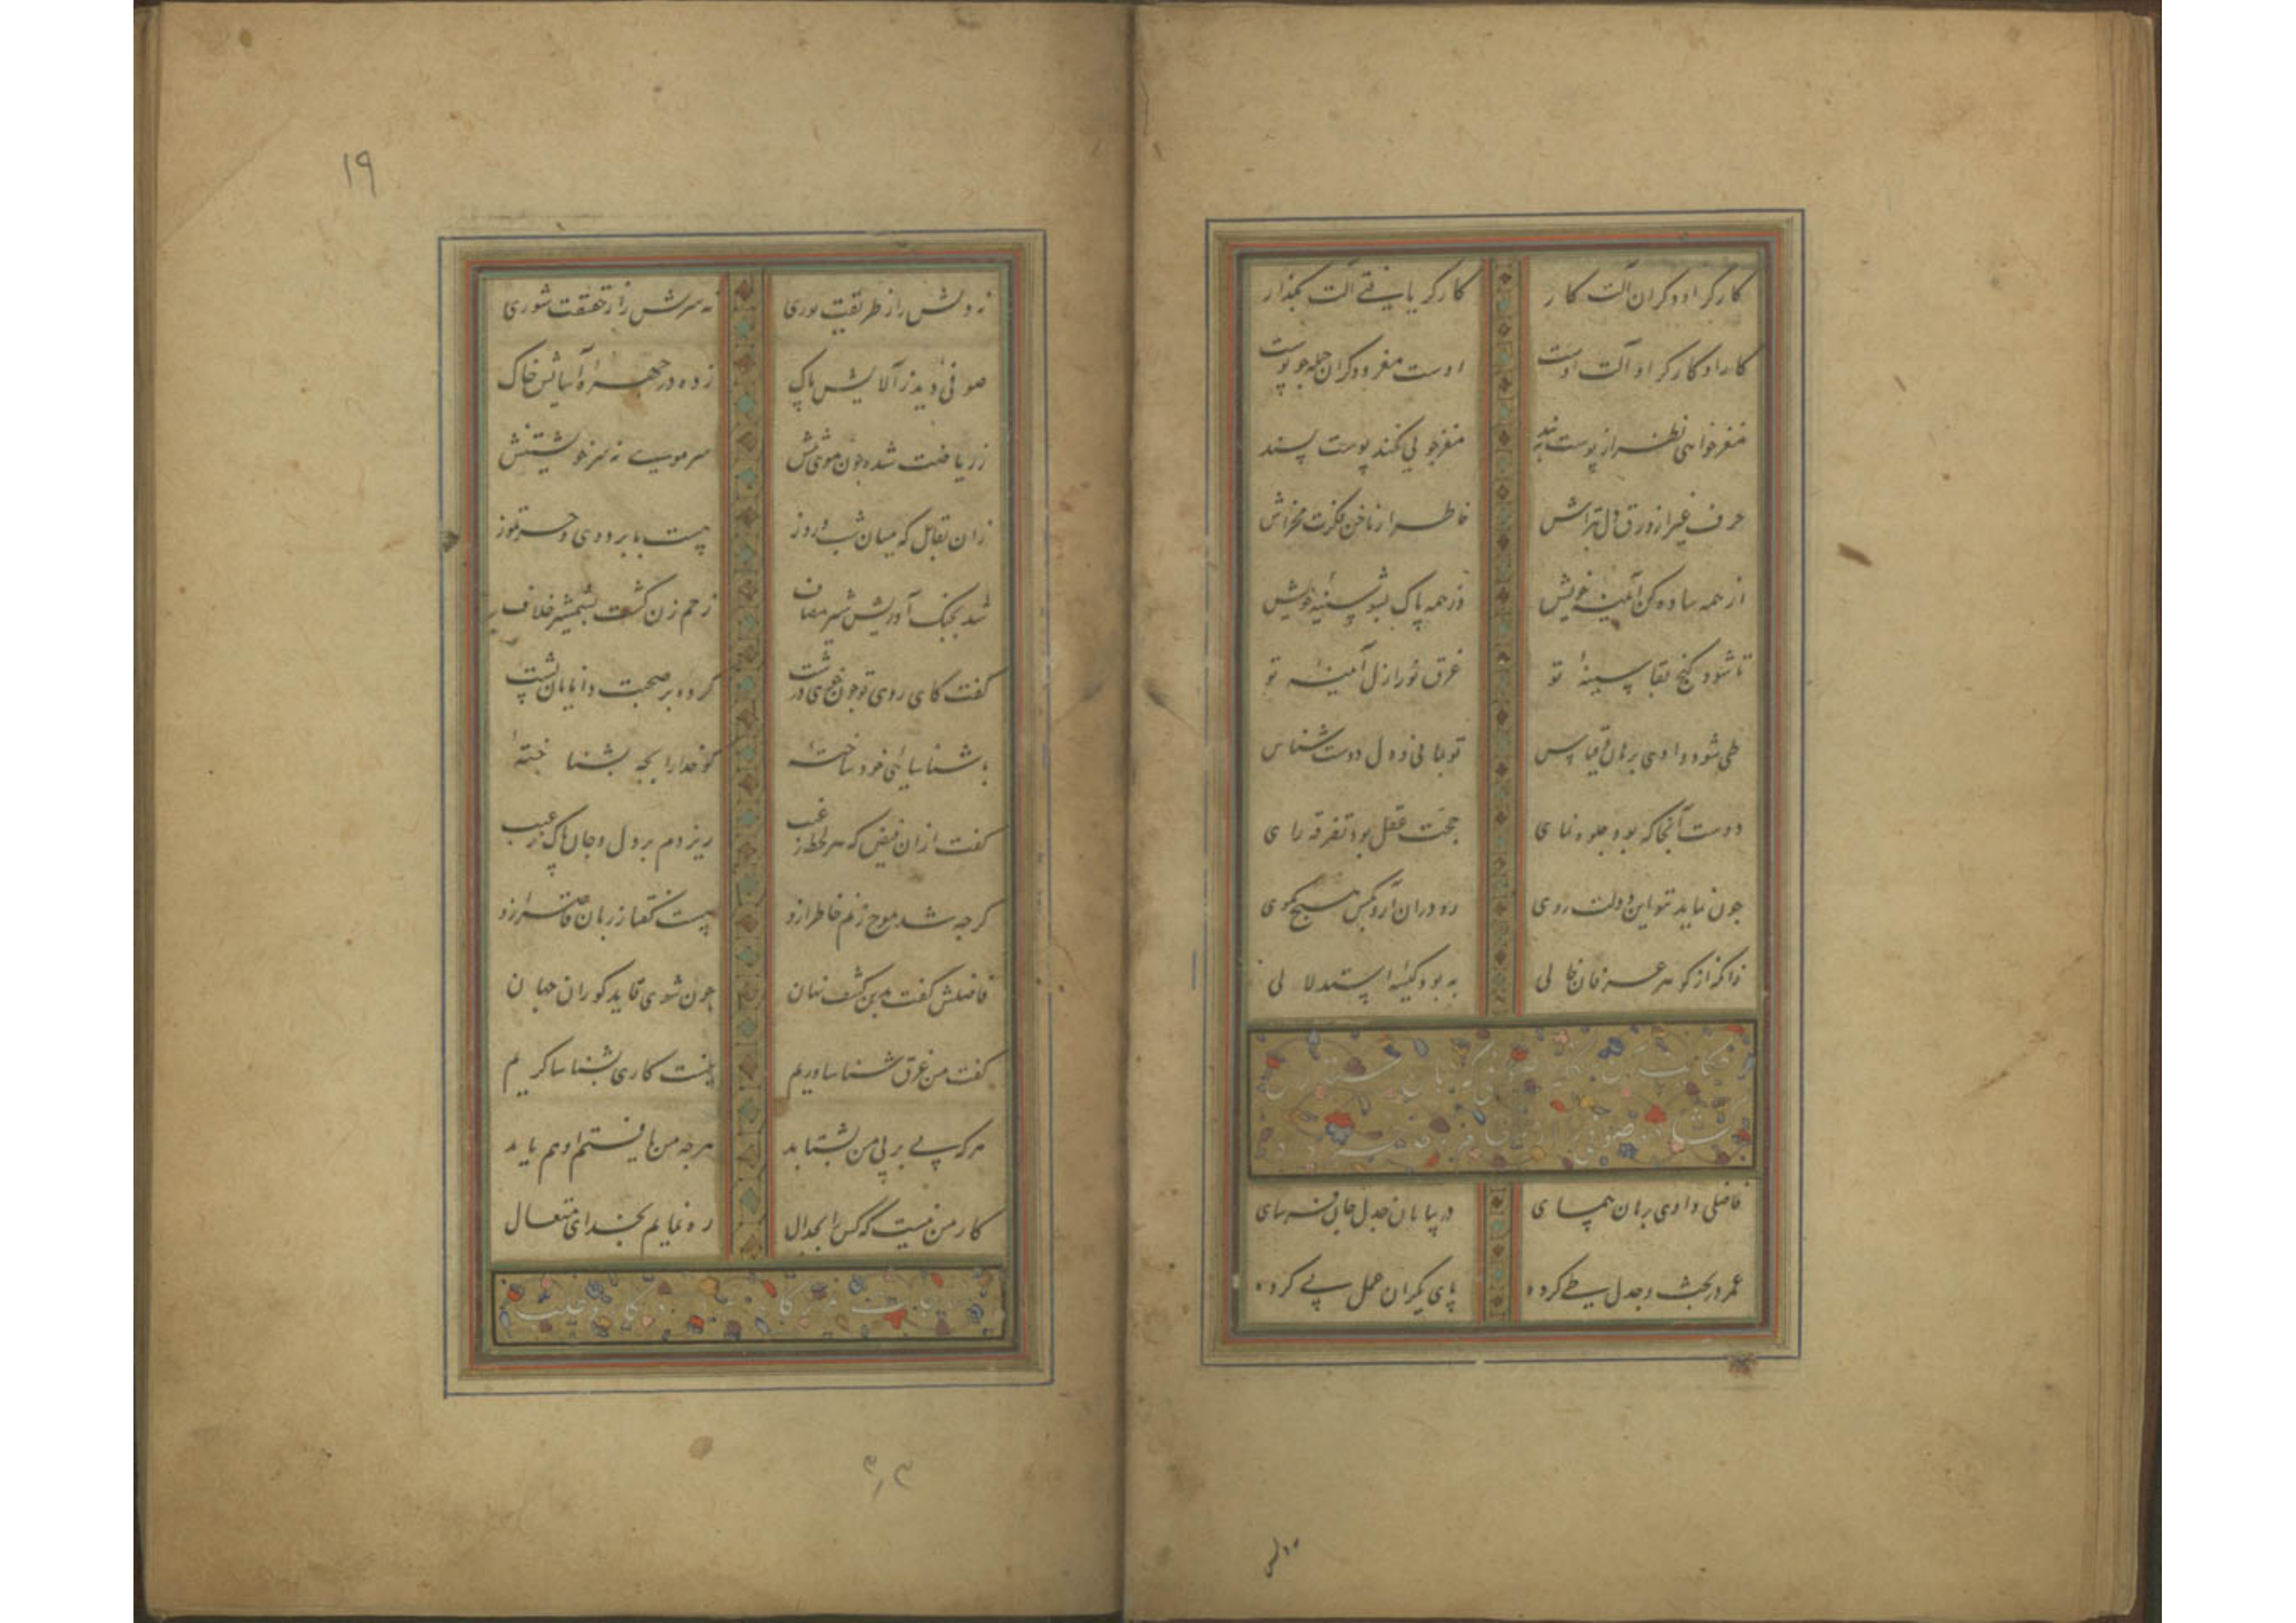 کارگر او دگران آلت کار کارگر یافتی آلت بگذار
کار او کارگر او آلت اوست اوست مغز و دگران جمله چو پوست
مغز خواهی نظر از پوست ببند مغزجویی نکند پوست پسند
حرف غیر از ورق دل بتراش خاطر از ناخن فکرت مخراش
از همه ساده کن آیینه خویش وز همه پاک بشو سینه خویش
تا شود گنج بقا سینهٔ تو غرق نور ازل آیینهٔ تو
طی شود وادی برهان و قیاس تو بمانی و دل دوست شناس
دوست آنجا که بود جلوه نمای حجت عقل بود تفرقه رای
چون نماید بتو این دولت روی رو در آن آر و بکس هیچ مگوی
زانکه از گوهر عرفان خالی به بود کیسهٔ استدلالی
فاضلی وادی برهان پیمای در بیابان جدل جان فرسای
عمر در بحث و جدل طی کرده پای یکران عمل پی کرده
۱۹
نه دلش را ز طریقت نوری نه سرش را ز حقیقت شوری
صوفیی دید ز آلایش پاک زده در چهره آسایش خاک
ز ریاضت شده چون موی تنش سر مویی نه سر خویشتنش
زان تقابل که میان شب و روز نیست با بردی و حر تموز
شد بجنگ آوریش شیر مصاف زخم زن گشت بشمشیر خلاف
گفت کای روی تو چون خوی درشت کرده بر صحبت دانایان پشت
به شناسائی خود ساختهٔ گو خدا را بچه بشناختهٔ
گفت از آن فیض که هر لحظه ز غیب ریزدم بر دل و جان پاک ز عیب
گرچه شد موج زنم خاطر ازو نیست گفتار زبان قاصر ازو
فاضلش گفت بدین کشف نهان چون شوی قاید کوران جهان
گفت من غرق شناساوریم نیست کاری بشناساگریم
هر که پی بر پی من بشتابد هر چه من یافتم او هم یابد
کار من نیست که کس را بجدال ره نمایم بخدای متعال